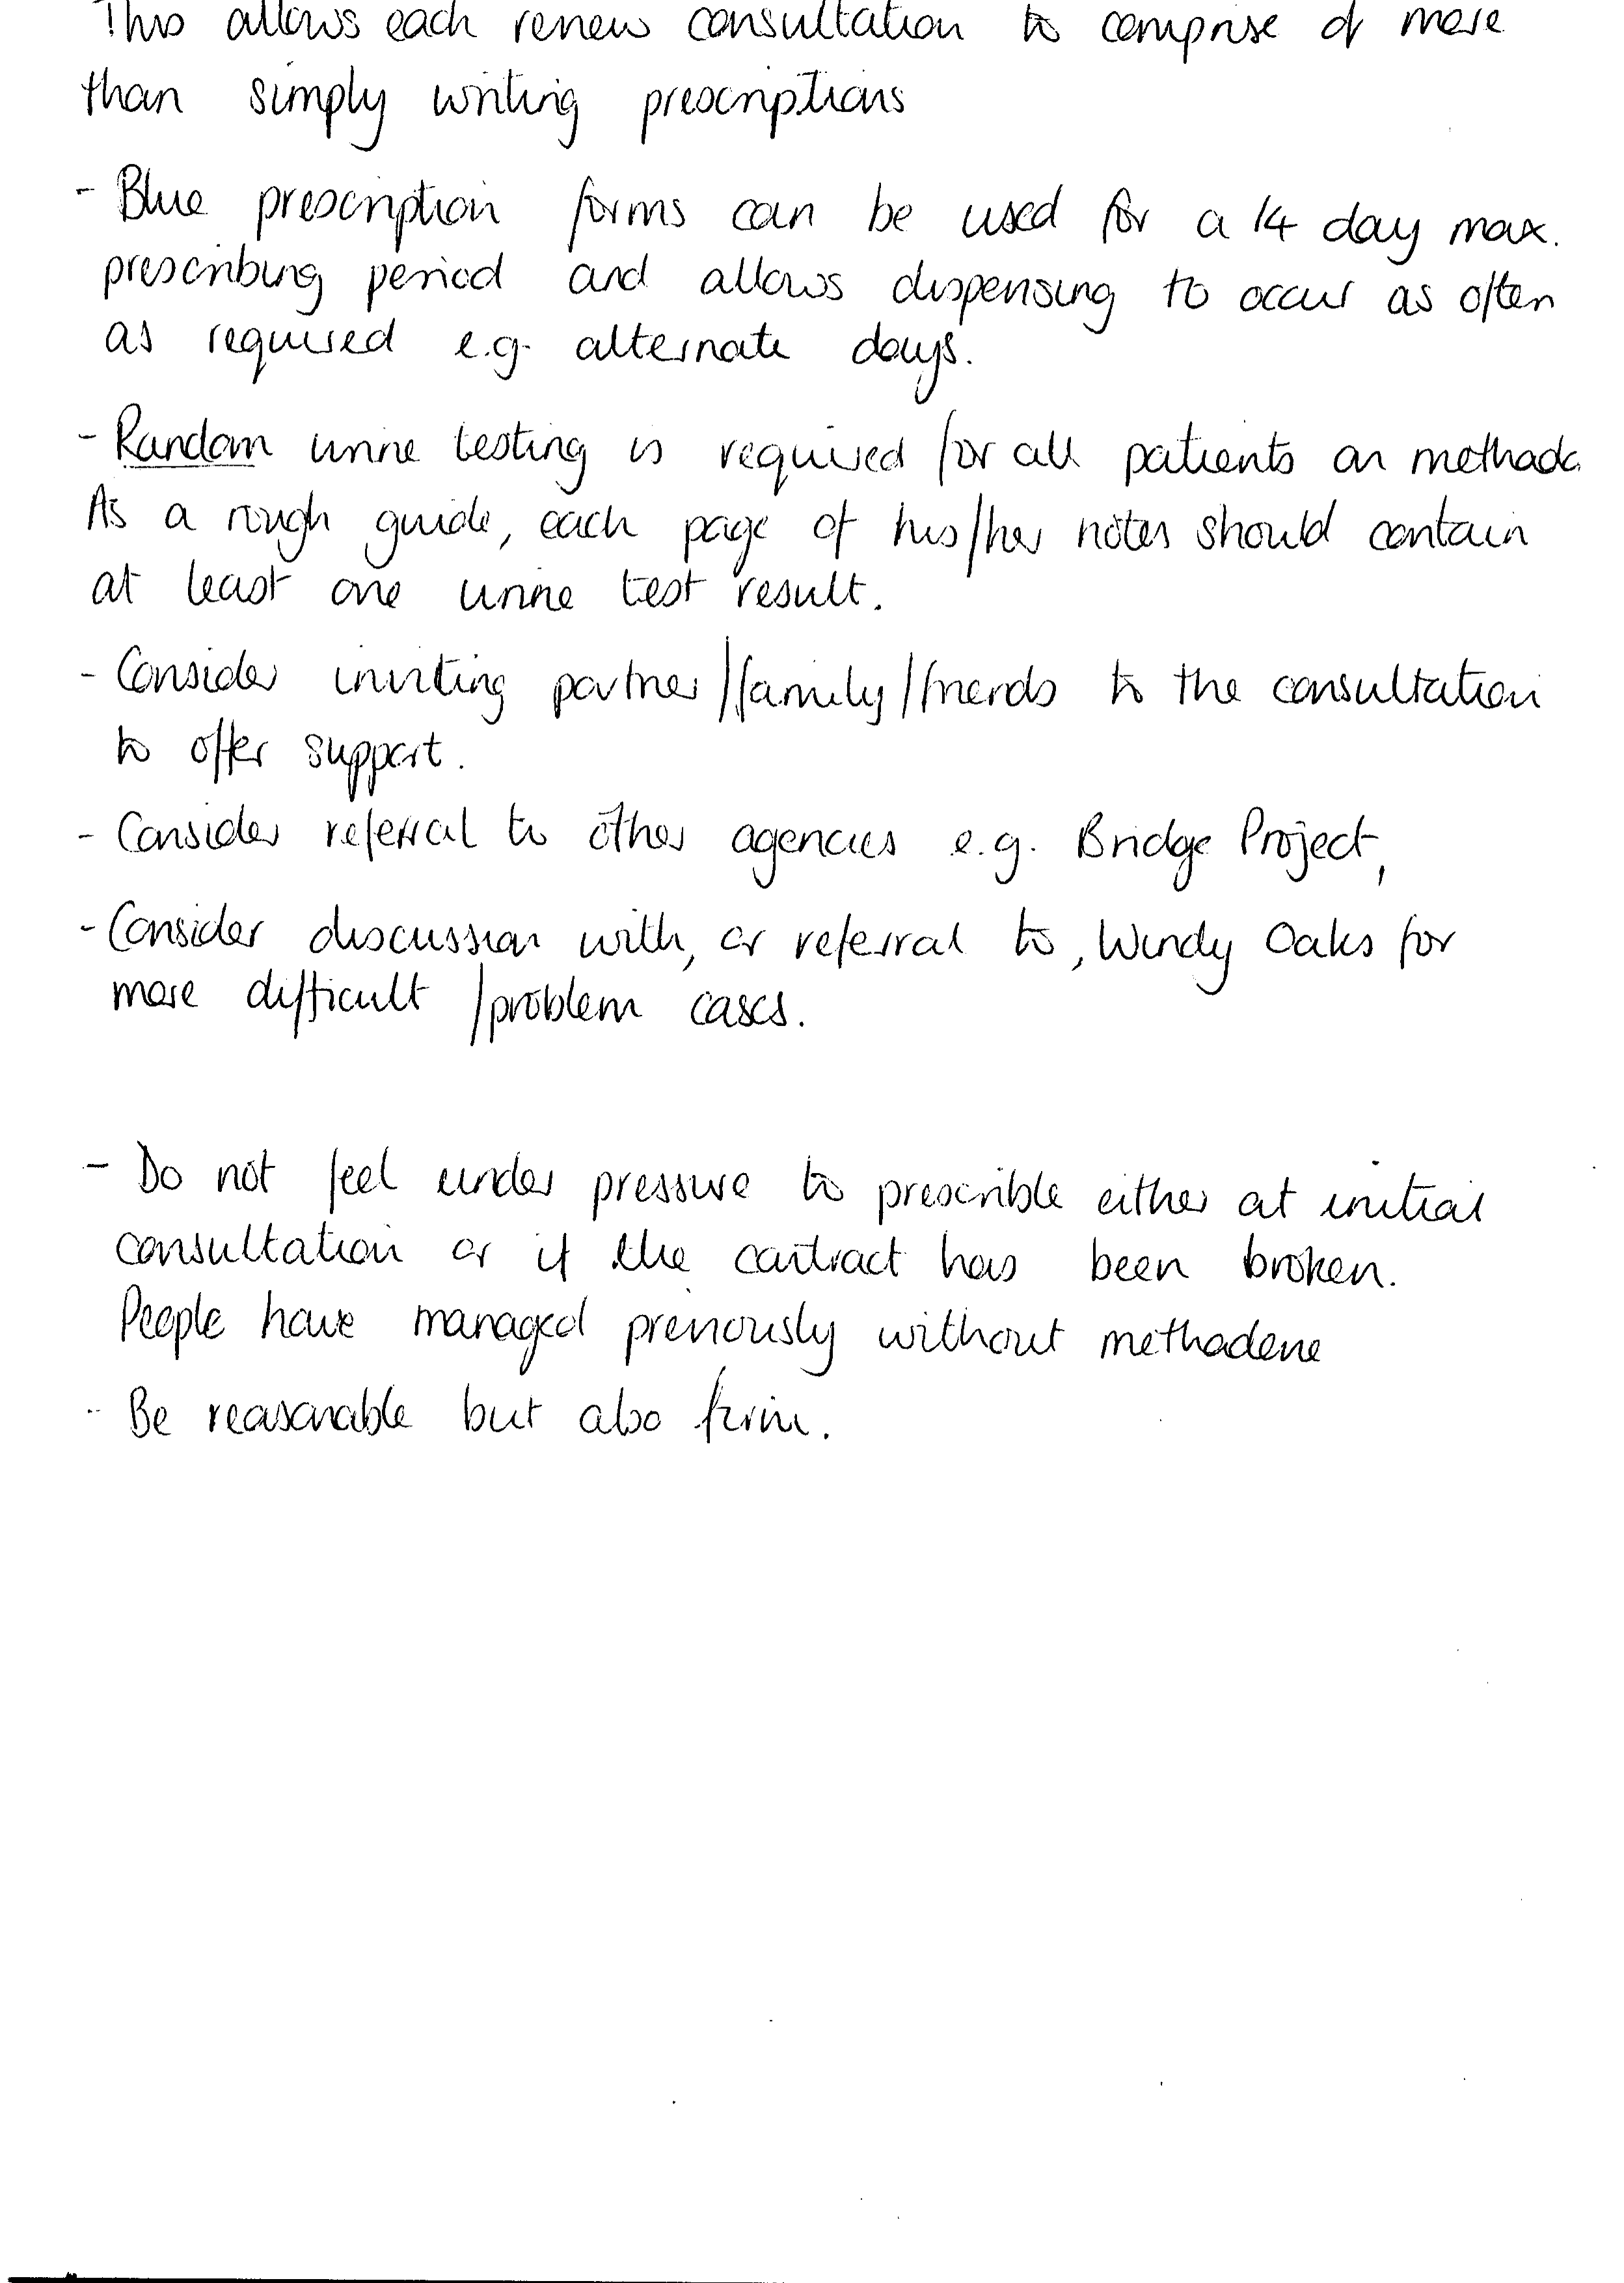 This allows each review consultation to comprise of more
than simply writing prescriptions
- Blue prescription forms can be used for a 14 day max.
prescribing period and allows dispensing to occur as often
as required e.g. alternate days.
- Random urine testing is required for all patients on methado
As a rough guide, each page of his/her notes should contain
at least one urine test result.
- Consider inviting partner/family/friends to the consultation
to offer support.
- Consider referral to other agencies e.g. Bridge Project,
- Consider discussion with, or referral to, Windy Oaks for
more difficult /problem cases.
- Do not feel under pressure to prescrible either at initial
consultation or if the contract has been broken.
People have managed previously without methadone
- Be reasonable but also firm.